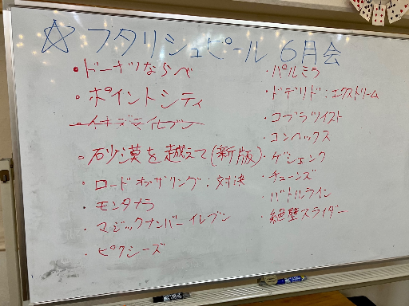 ☆ フタリシュピール 6月会
・ドーナツならべ
・ポイントシティ
・砂漠を越えて(新版)
・ロードオブザリング:対決
・モンタナ
・マジックナンバーイレブン
・ピクシーズ
・パルミラ
・ドデリド:エクストリーム
・コブラツイスト
・コンヘックス
・ゲシェンク
・チューンズ
・絶壁スライダー